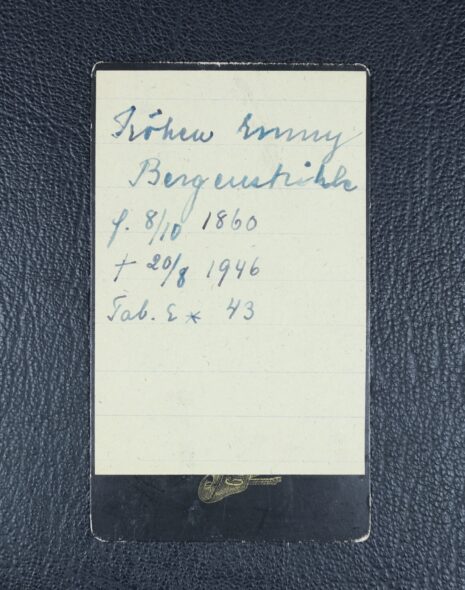 Fröken Emmy
Bergenstråhle
f. 8/10 1860
† 20/8 1946
Tab. E * 43